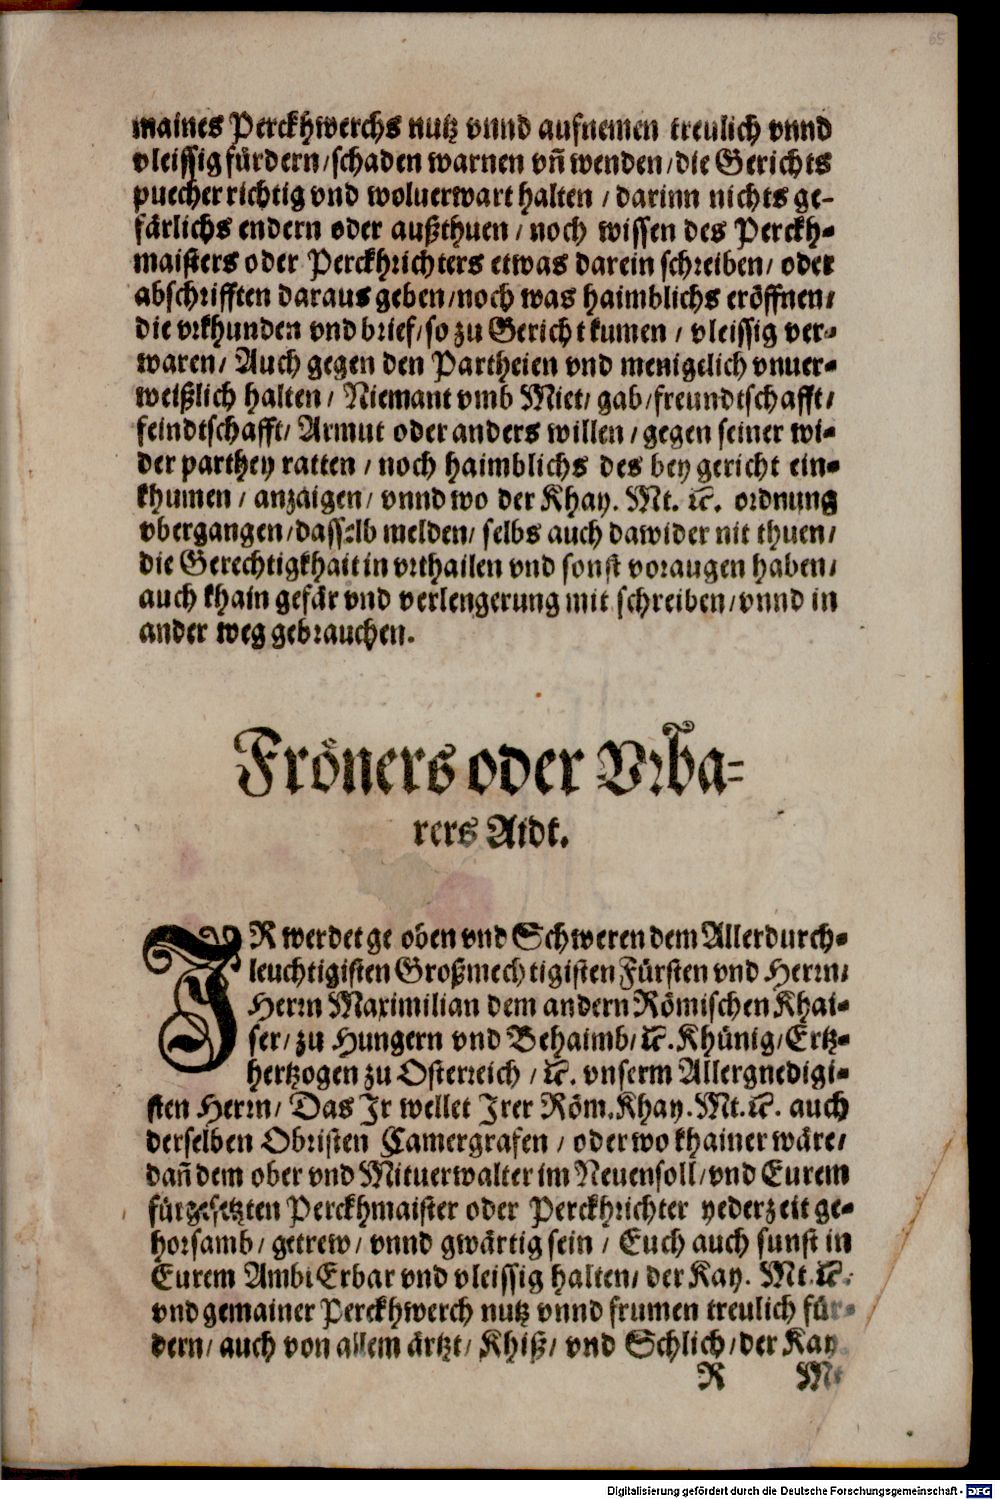 65
maines Perckhwerchs nutz vnnd aufnemen treulich vnnd
vleissig fürdern/schaden warnen vñ wenden/die Gerichts
puecher richtig vnd woluerwart halten / darinn nichts ge-
färlichs endern oder außthuen / noch wissen des Perckh-
maisters oder Perckhrichters etwas darein schreiben/ oder
abschrifften daraus geben/noch was haimblichs eröffnen/
die vrkhunden vnd brief/so zu Gericht kumen / vleissig ver-
waren/ Auch gegen den Partheien vnd menigelich vnuer-
weißlich halten/ Niemant vmb Miet/ gab/freundtschafft/
feindtschafft/ Armut oder anders willen / gegen seiner wi-
der parthey ratten / noch haimblichs des bey gericht ein-
khumen / anzaigen/ vnnd wo der Khay. Mt. ꝛc. ordnung
vbergangen/dasselb melden/ selbs auch dawider nit thuen/
die Gerechtigkhait in vrthailen vnd sonst voraugen haben/
auch khain gefär vnd verlengerung mit schreiben/vnnd in
ander weg gebrauchen.
Fröners oder Vrba-
rers Aidt.
IR werdet geoben vnd Schweren dem Allerdurch-
leuchtigisten Großmechtigisten Fürsten vnd Herrn/
Herrn Maximilian dem andern Römischen Khai-
ser/ zu Hungern vnd Behaimb/ ꝛc. Khünig/Ertz-
hertzogen zu Osterreich / ꝛc. vnserm Allergnedigi-
sten Herrn/ Das Ir wellet Irer Röm. Khay. Mt. ꝛc. auch
derselben Obristen Camergrafen / oder wo khainer wäre/
dañ dem ober vnd Mituerwalter im Neuensoll/vnd Eurem
fürgesetzten Perckhmaister oder Perckhrichter yederzeit ge-
horsamb/ getrew/ vnnd gwärtig sein / Euch auch sunst in
Eurem Ambt Erbar vnd vleissig halten/ der Kay. Mt. ꝛc.
vnd gemainer Perckhwerch nutz vnnd frumen treulich für-
dern/ auch von allem ärtzt/ Khiß/ vnd Schlich/der Kay.
R Mt
Digitalisierung gefördert durch die Deutsche Forschungsgemeinschaft - DFG